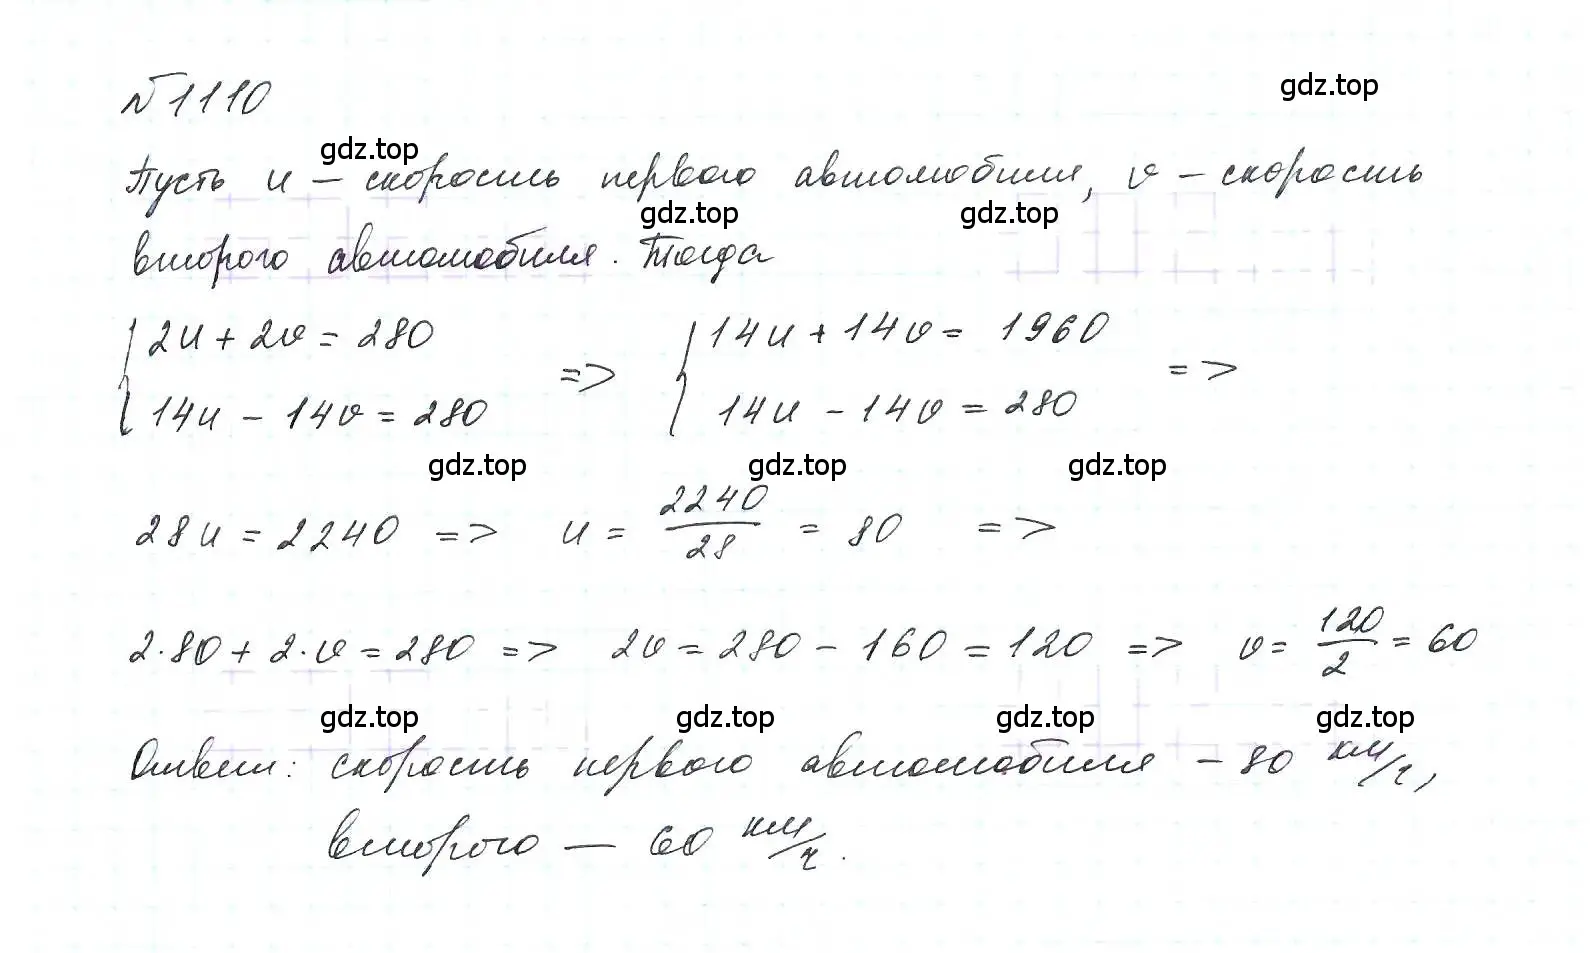 №1110
gdz.top
gdz.top
Пусть u – скорость первого автомобиля, v – скорость
gdz.top gdz.top
второго автомобиля. Тогда
{ 2u + 2v = 280 => { 14u + 14v = 1960 =>
14u - 14v = 280 14u - 14v = 280
gdz.top gdz.top gdz.top
28u = 2240 => u = 2240/28 = 80 =>
2·80 + 2·v = 280 => 2v = 280 - 160 = 120 => v = 120/2 = 60
gdz.top gdz.top gdz.top gdz.top
Ответ: скорость первого автомобиля – 80 км/ч,
второго – 60 км/ч.